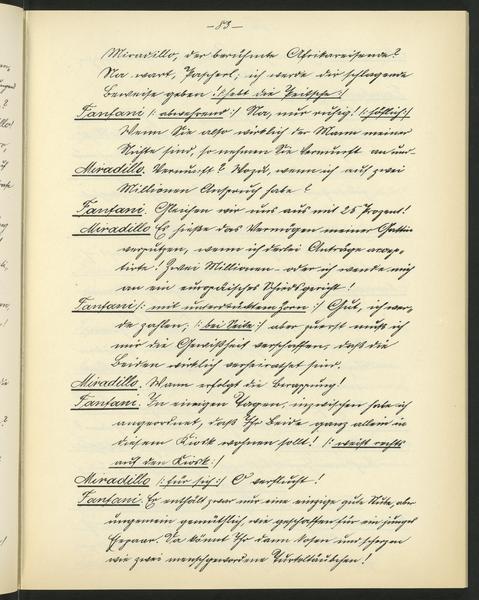 — 83 —
Miradillo, der berühmte Afrikareisende?
Na wart, Pascherl, ich werde dir schlagende
Beweise geben! /: hebt die Peitsche :/
Fanfani /: abwehrend :/ Na, nur ruhig! /: höflich :/
Wenn Sie also wirklich der Mann meiner
Nichte sind, so nehmen Sie Vernunft an und-
Miradillo. Vernunft? Wozu, wenn ich auf zwei
Millionen Anspruch habe?
Fanfani. Gleichen wir uns aus mit 25 Prozent!
Miradillo. Es hieße das Vermögen meiner Gattin
verputzen, wenn ich derlei Anträge accep-
tirte! Zwei Millionen – oder ich wende mich
an ein europäisches Schiedsgericht!
Fanfani /: mit unterdrücktem Zorn :/ Gut, ich wer-
de zahlen; /: bei Seite :/ aber zuerst muß ich
mir die Gewißheit verschaffen, daß die
Beiden wirklich verheirathet sind.
Miradillo. Wann erfolgt die Berappung!
Fanfani. In einigen Tagen, inzwischen habe ich
angeordnet, daß Ihr Beide ganz allein in
diesem Kiosk wohnen sollt! /: weist rechts
auf den Kiosk :/
Miradillo /: für sich :/ O verflucht!
Fanfani. Er enthält zwar nur eine einzige gute Stube, aber
ungemein gemüthlich, wie geschaffen für ein junges
Ehepaar. Da könnt Ihr dann kosen und scherzen
wie zwei menschgewordene Turteltäubchen!